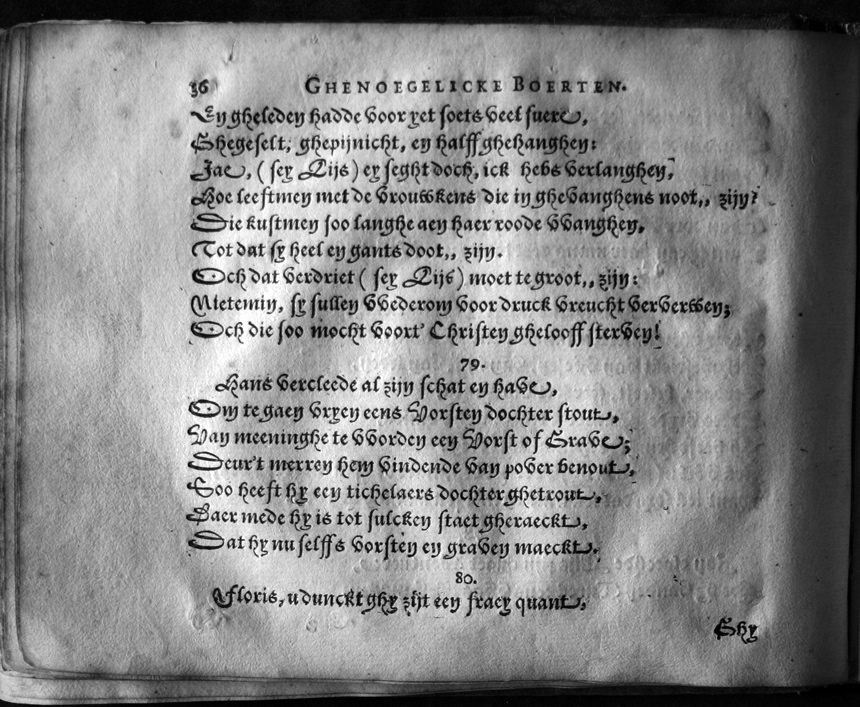 36 GHENOEGELICKE BOERTEN.
En gheleden hadde voor yet soets veel suere,
Ghegeselt, ghepijnicht, en halff ghehanghen:
Jae, (sey Lijs) ey seght doch, ick hebs verlanghen,
Hoe leeftmen met de vrouwkens die in ghevanghens noot,, zijn?
Die kustmen soo langhe aen haer roode vvanghen,
Tot dat sy heel en gants doot,, zijn.
Och dat verdriet (sey Lijs) moet te groot,, zijn:
Nietemin, sy sullen vvederom voor druck vreucht verwerven;
Och die soo mocht voort' Christen ghelooff sterven!
79.
Hans vercleede al zijn schat en have,
Om te gaen vryen eens Vorsten dochter stout,
Van meeninghe te vvorden een Vorst of Grave;
Deur't merren hem vindende van pover benout,
Soo heeft hy een tichelaers dochter ghetrout,
Daer mede hy is tot sulcken staet gheraeckt,
Dat hy nu selffs vorsten en graven maeckt.
80.
Floris, u dunckt ghy zijt een fraey quant,
Ghy